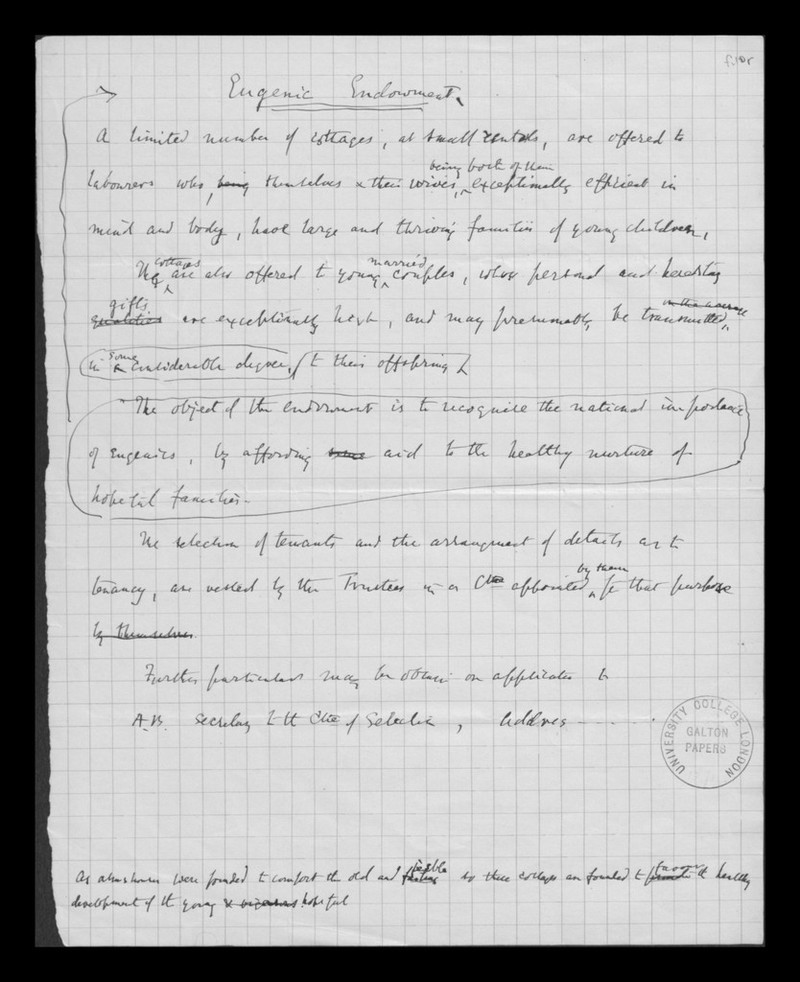 f.10r
Eugenic Endowment
A limited number of cottages, at small rentals, are offered to
being both of them
labourers who, being themselves & their wives, exceptionally efficient in
mind and body, have large and thriving families of young children,
cottages married
The are also offered to young couples, whose personal and hereditary
gifts
qualities are exceptionally high, and may presumably be transmitted,
some
in considerable degree, to their offspring
The object of the endowment is to recognise the national importance
of Eugenics, by affording some aid to the healthy nurture of
hopeful families.
The selection of tenants and the arrangement of details as to
by them
tenancy, are vested by the Trustees in a Ctee appointed for that purpose
by themselves.
Further particulars may be obtain on application to
A.B. Secretary to the Ctee of Selection, Address
feeble favour
As almshouses were founded to comfort the old and so these cottages are founded to promote the healthy
development of the young & vigorous hopeful
UNIVERSITY COLLEGE LONDON
GALTON
PAPERS